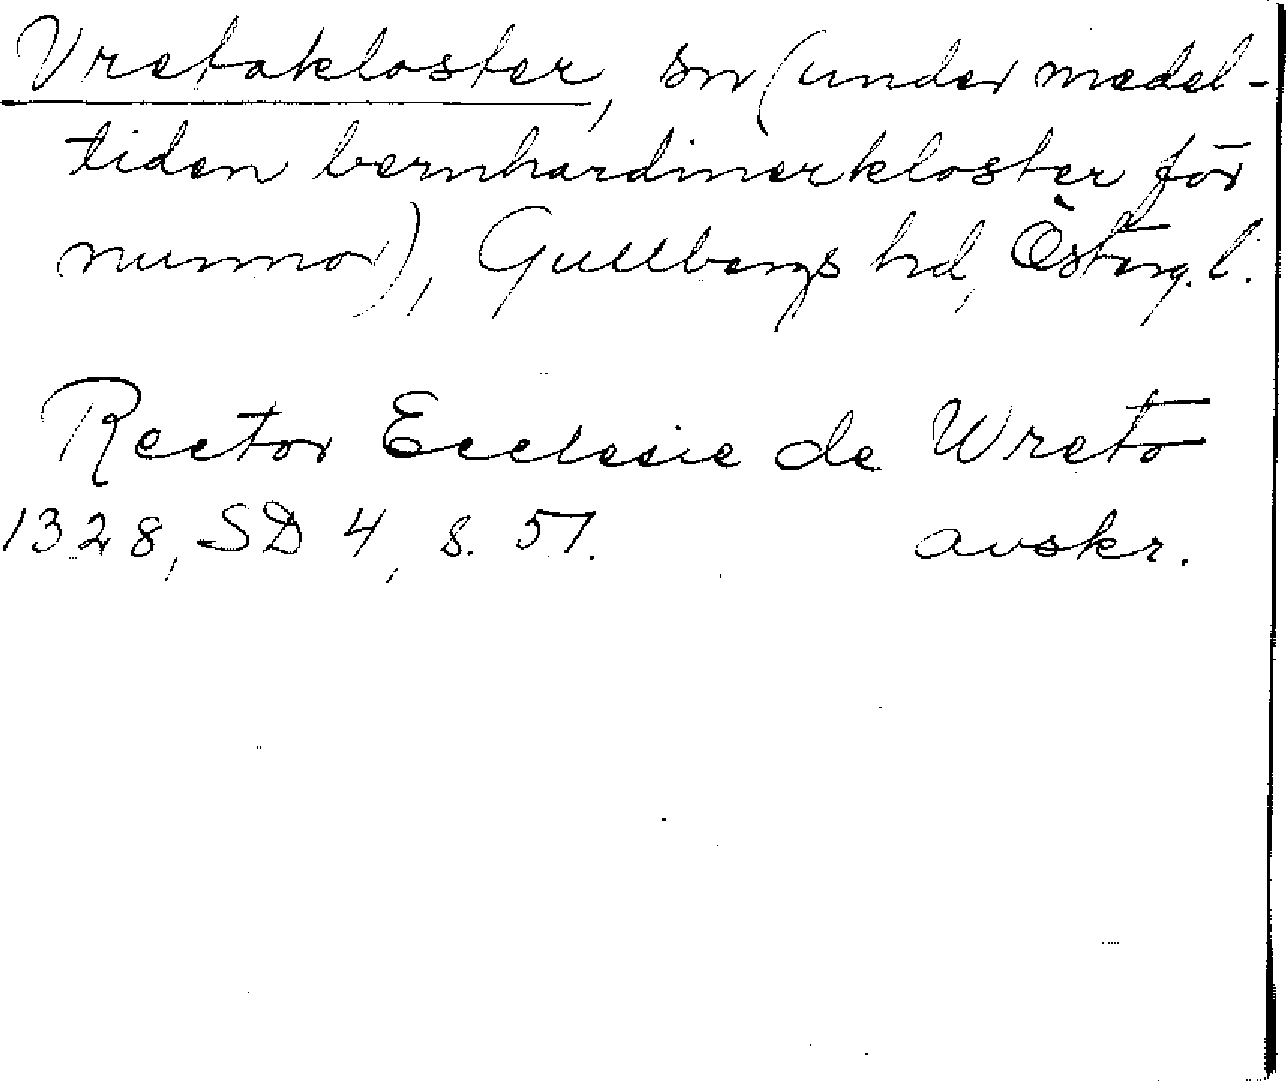 Vretakloster, sn (under medel-
tiden bernhardinerkloster för
nunnor), Gullbergs hd, Österg. l.
Rector Ecclesie de Wreta
1328, SD 4, s. 51. avskr.